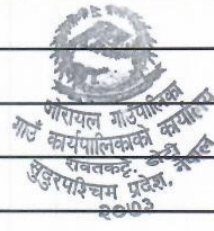 जोरायल गाउँपालिका
गाउँ कार्यपालिकाको कार्यालय
रावतकट्टे, डोटी
सुदुरपश्चिम प्रदेश, नेपाल
२०७३